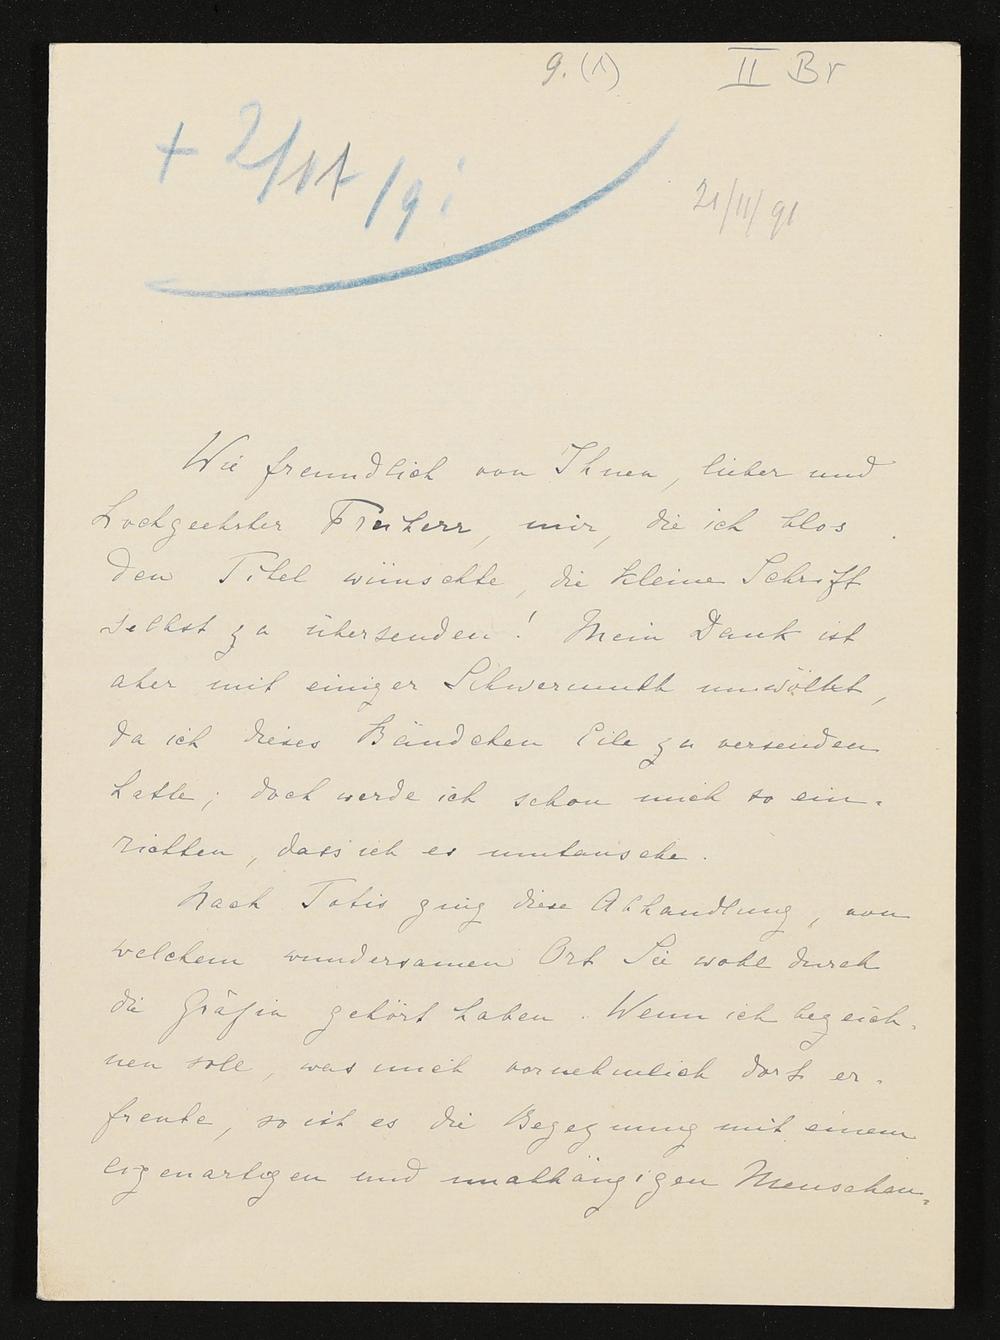 9. (1) II Br
+ 2/11/91
21/11/91
Wie freundlich von Ihnen, lieber und
hochgeehrter Freiherr, mir, die ich blos
den Titel wünschte, die kleine Schrift
selbst zu übersenden! Mein Dank ist
aber mit einiger Schwermuth umwölkt,
da ich dieses Bändchen Eile zu versenden
hatte; doch werde ich schon mich so ein-
richten, dass ich es umtausche.
Nach Totis ging diese Abhandlung, von
welchem wundersamen Ort Sie wohl durch
die Gräfin gehört haben. Wenn ich bezeich-
nen soll, was mich vornehmlich dort er-
freute, so ist es die Begegnung mit einem
eigenartigen und unabhängigen Menschen-